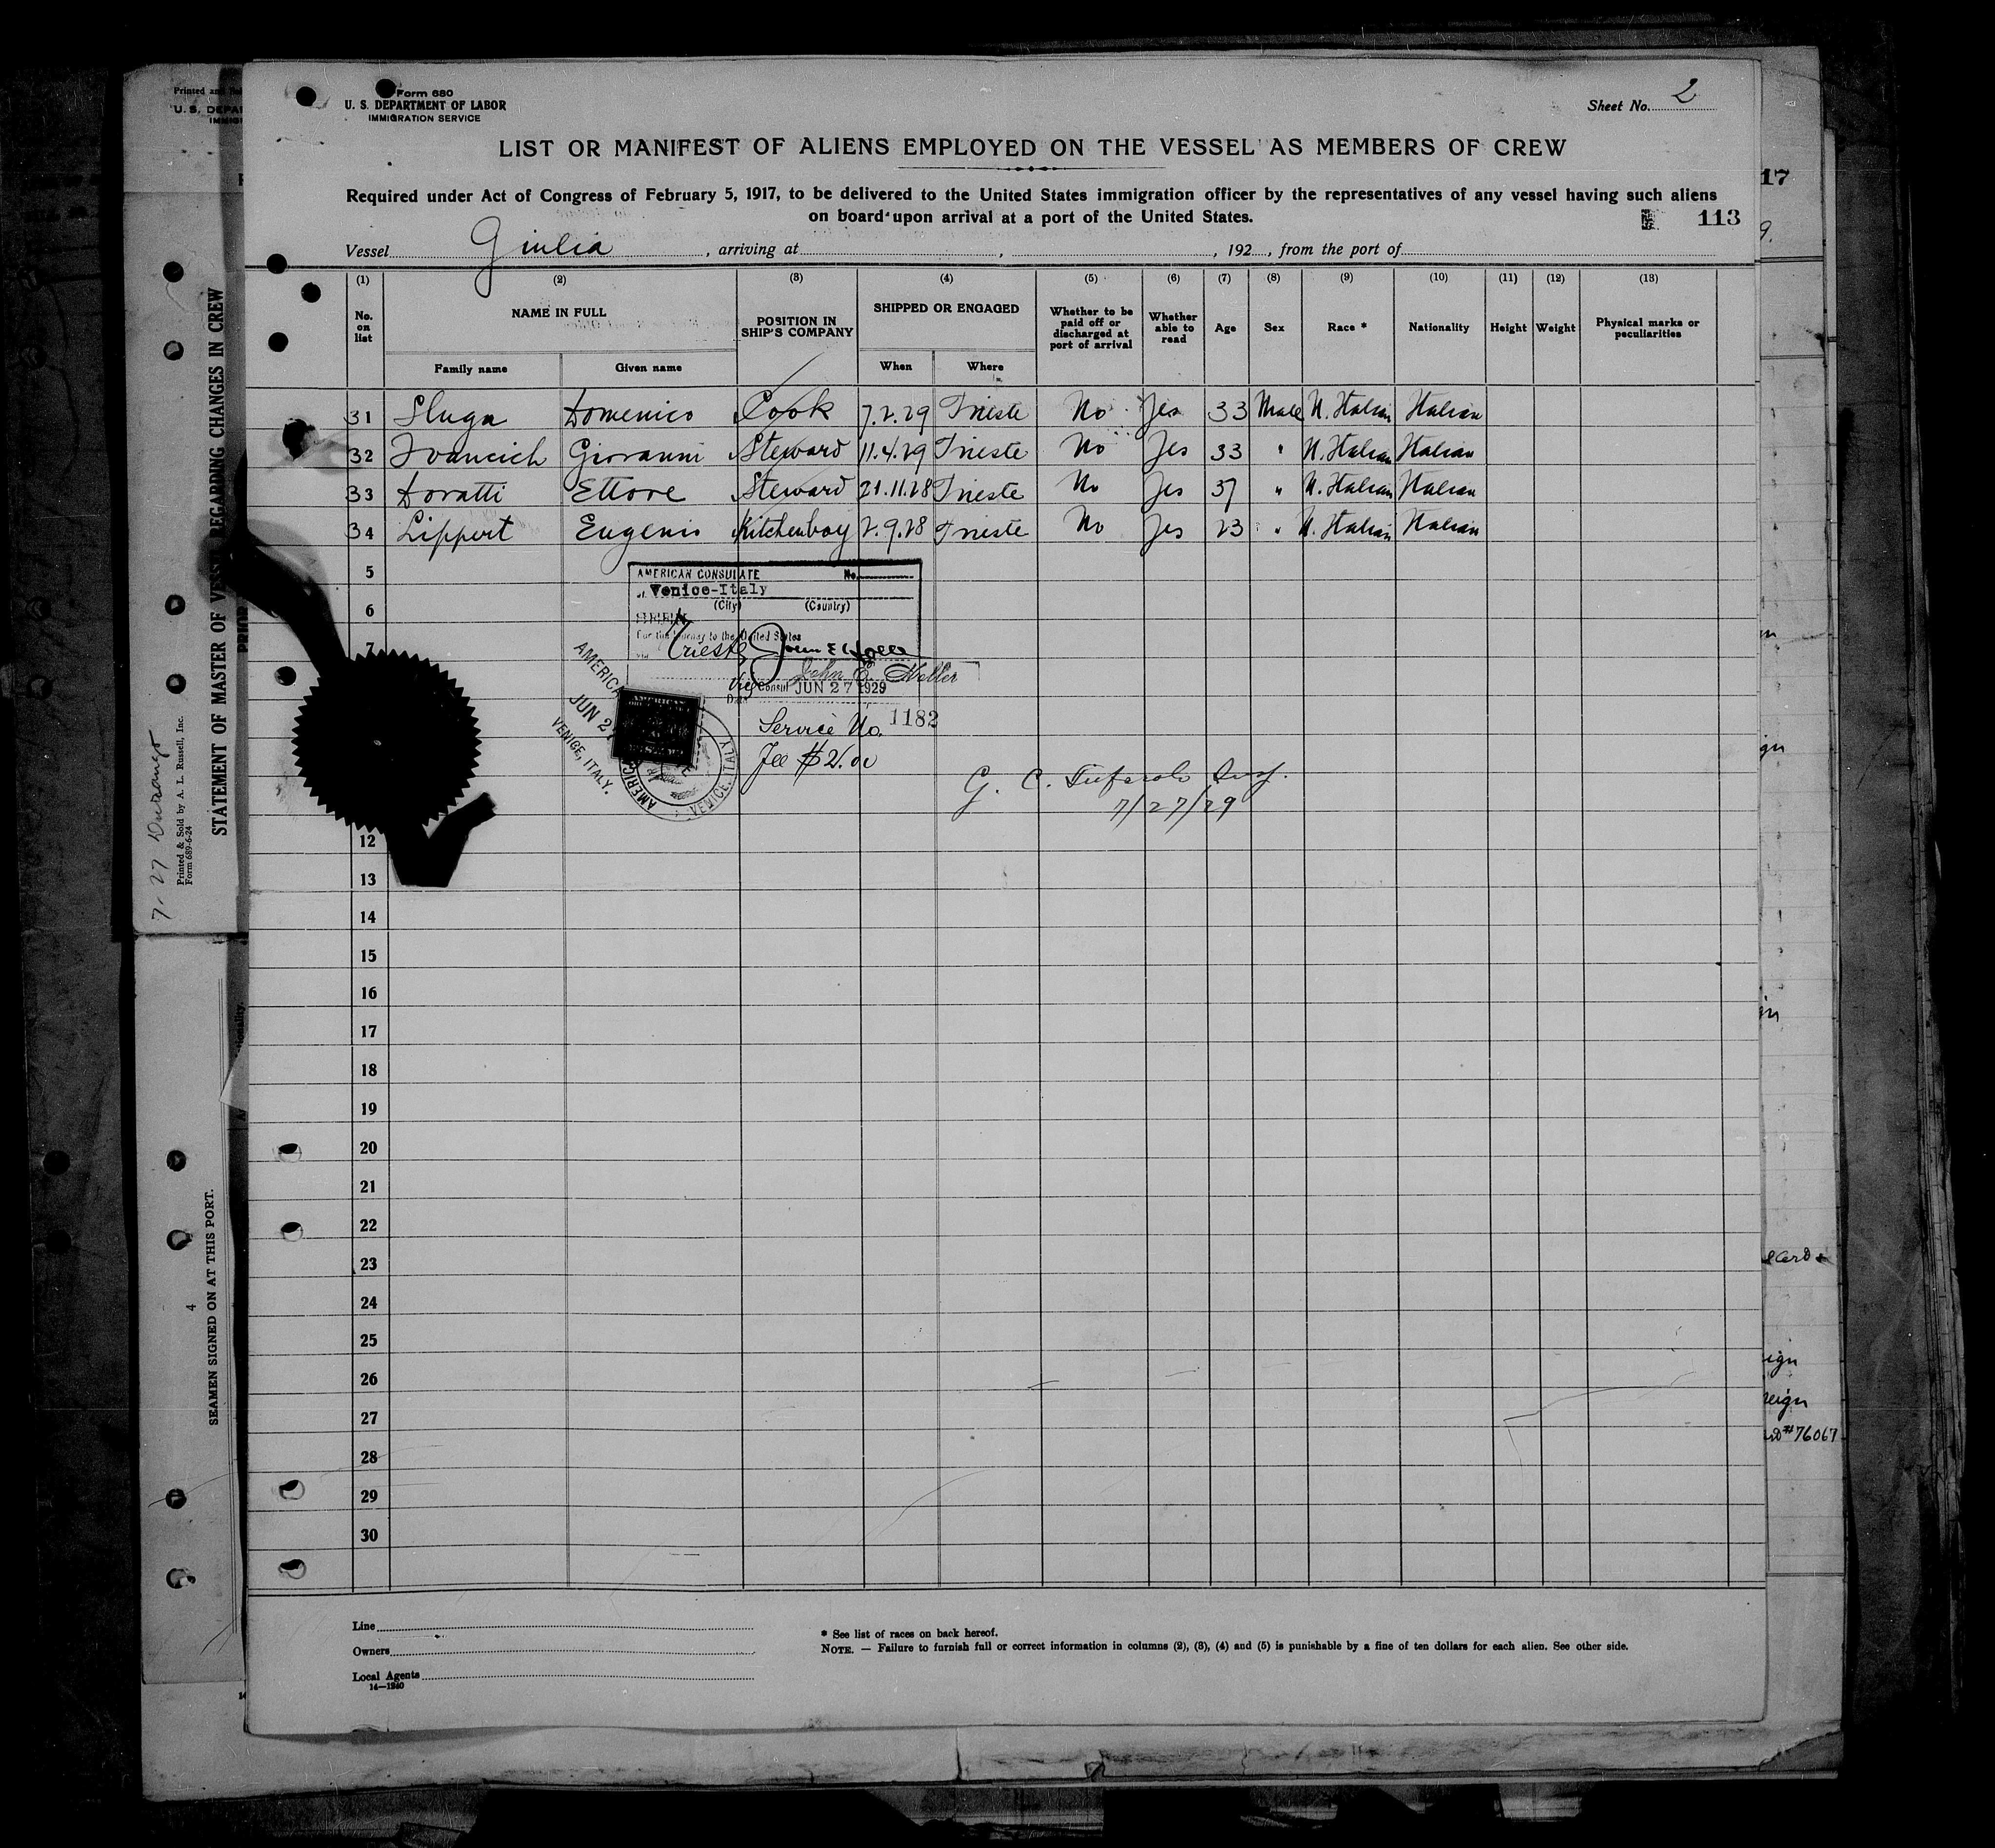 Form 680
U. S. DEPARTMENT OF LABOR
IMMIGRATION SERVICE
Sheet No. 2
LIST OR MANIFEST OF ALIENS EMPLOYED ON THE VESSEL AS MEMBERS OF CREW
Required under Act of Congress of February 5, 1917, to be delivered to the United States immigration officer by the representatives of any vessel having such aliens
on board upon arrival at a port of the United States.
113
Vessel Giulia, arriving at , , 192 , from the port of
(1) (2) (3) (4) (5) (6) (7) (8) (9) (10) (11) (12) (13)
No. on list NAME IN FULL POSITION IN SHIP'S COMPANY SHIPPED OR ENGAGED Whether to be paid off or discharged at port of arrival Whether able to read Age Sex Race * Nationality Height Weight Physical marks or peculiarities
Family name Given name When Where
31 Sluga Domenico Cook 7.2.29 Trieste No Yes 33 Male N. Italian Italian
32 Ivancich Giovanni Steward 11.4.29 Trieste No Yes 33 " N. Italian Italian
33 Doratti Ettore Steward 21.11.28 Trieste No Yes 37 " N. Italian Italian
34 Lippert Eugenio Kitchenboy 2.9.28 Trieste No Yes 23 " N. Italian Italian
5
AMERICAN CONSULATE No.
at Venice-Italy
(City) (Country)
6
For the journey to the United States
7
Trieste
John E. Holler
Vice Consul JUN 27 1929
Date
AMERICAN
JUN 27
VENICE, ITALY.
VENICE, ITALY
Service No. 1182
Fee $2.00
G. C. Insp.
7/27/29
12
13
14
15
16
17
18
19
20
21
22
23
24
25
26
27
28
29
30
Line
Owners
Local Agents
14—1240
* See list of races on back hereof.
NOTE. — Failure to furnish full or correct information in columns (2), (3), (4) and (5) is punishable by a fine of ten dollars for each alien. See other side.
STATEMENT OF MASTER OF VESSEL REGARDING CHANGES IN CREW
PRIOR
Printed & Sold by A. L. Russell, Inc.
Form 689-6-24
7-27 Durango
SEAMEN SIGNED ON AT THIS PORT.
4
17
9.
eign
#76067